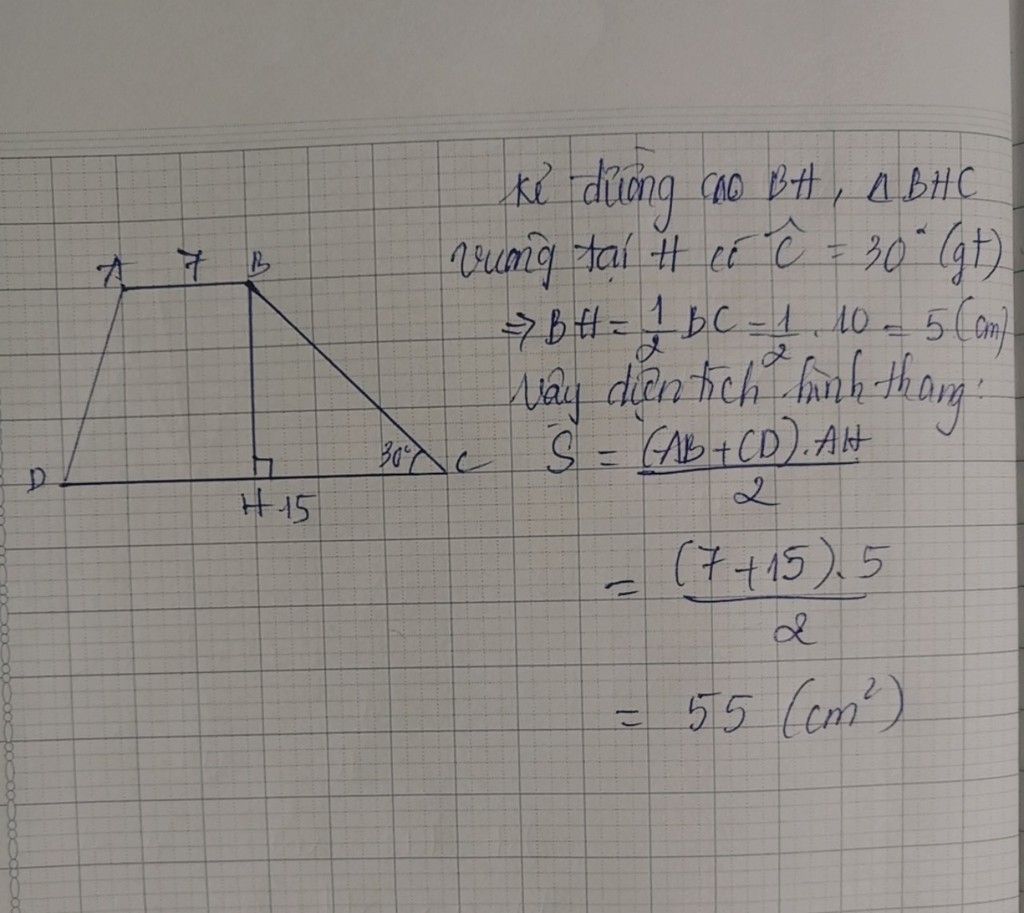 A 7 B
D H 15 30° C
Kẻ đường cao BH, Δ BHC
vuông tại H có Ĉ = 30° (gt)
⇒ BH = 1/2 BC = 1/2 . 10 = 5 (cm)
Vậy diện tích hình thang:
S = (AB + CD).AH / 2
= (7 + 15).5 / 2
= 55 (cm²)